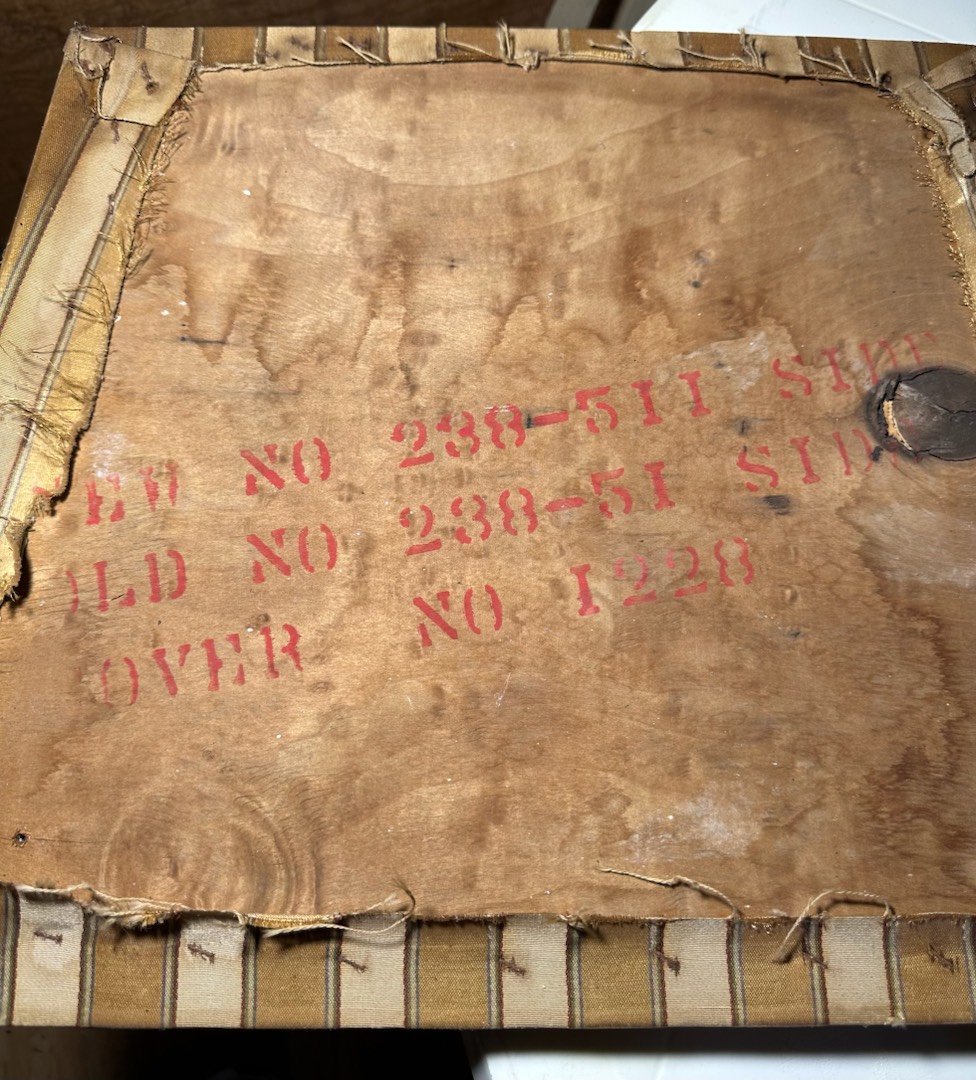 NEW NO 238-511 SIDE
OLD NO 238-51 SIDE
COVER NO 1228